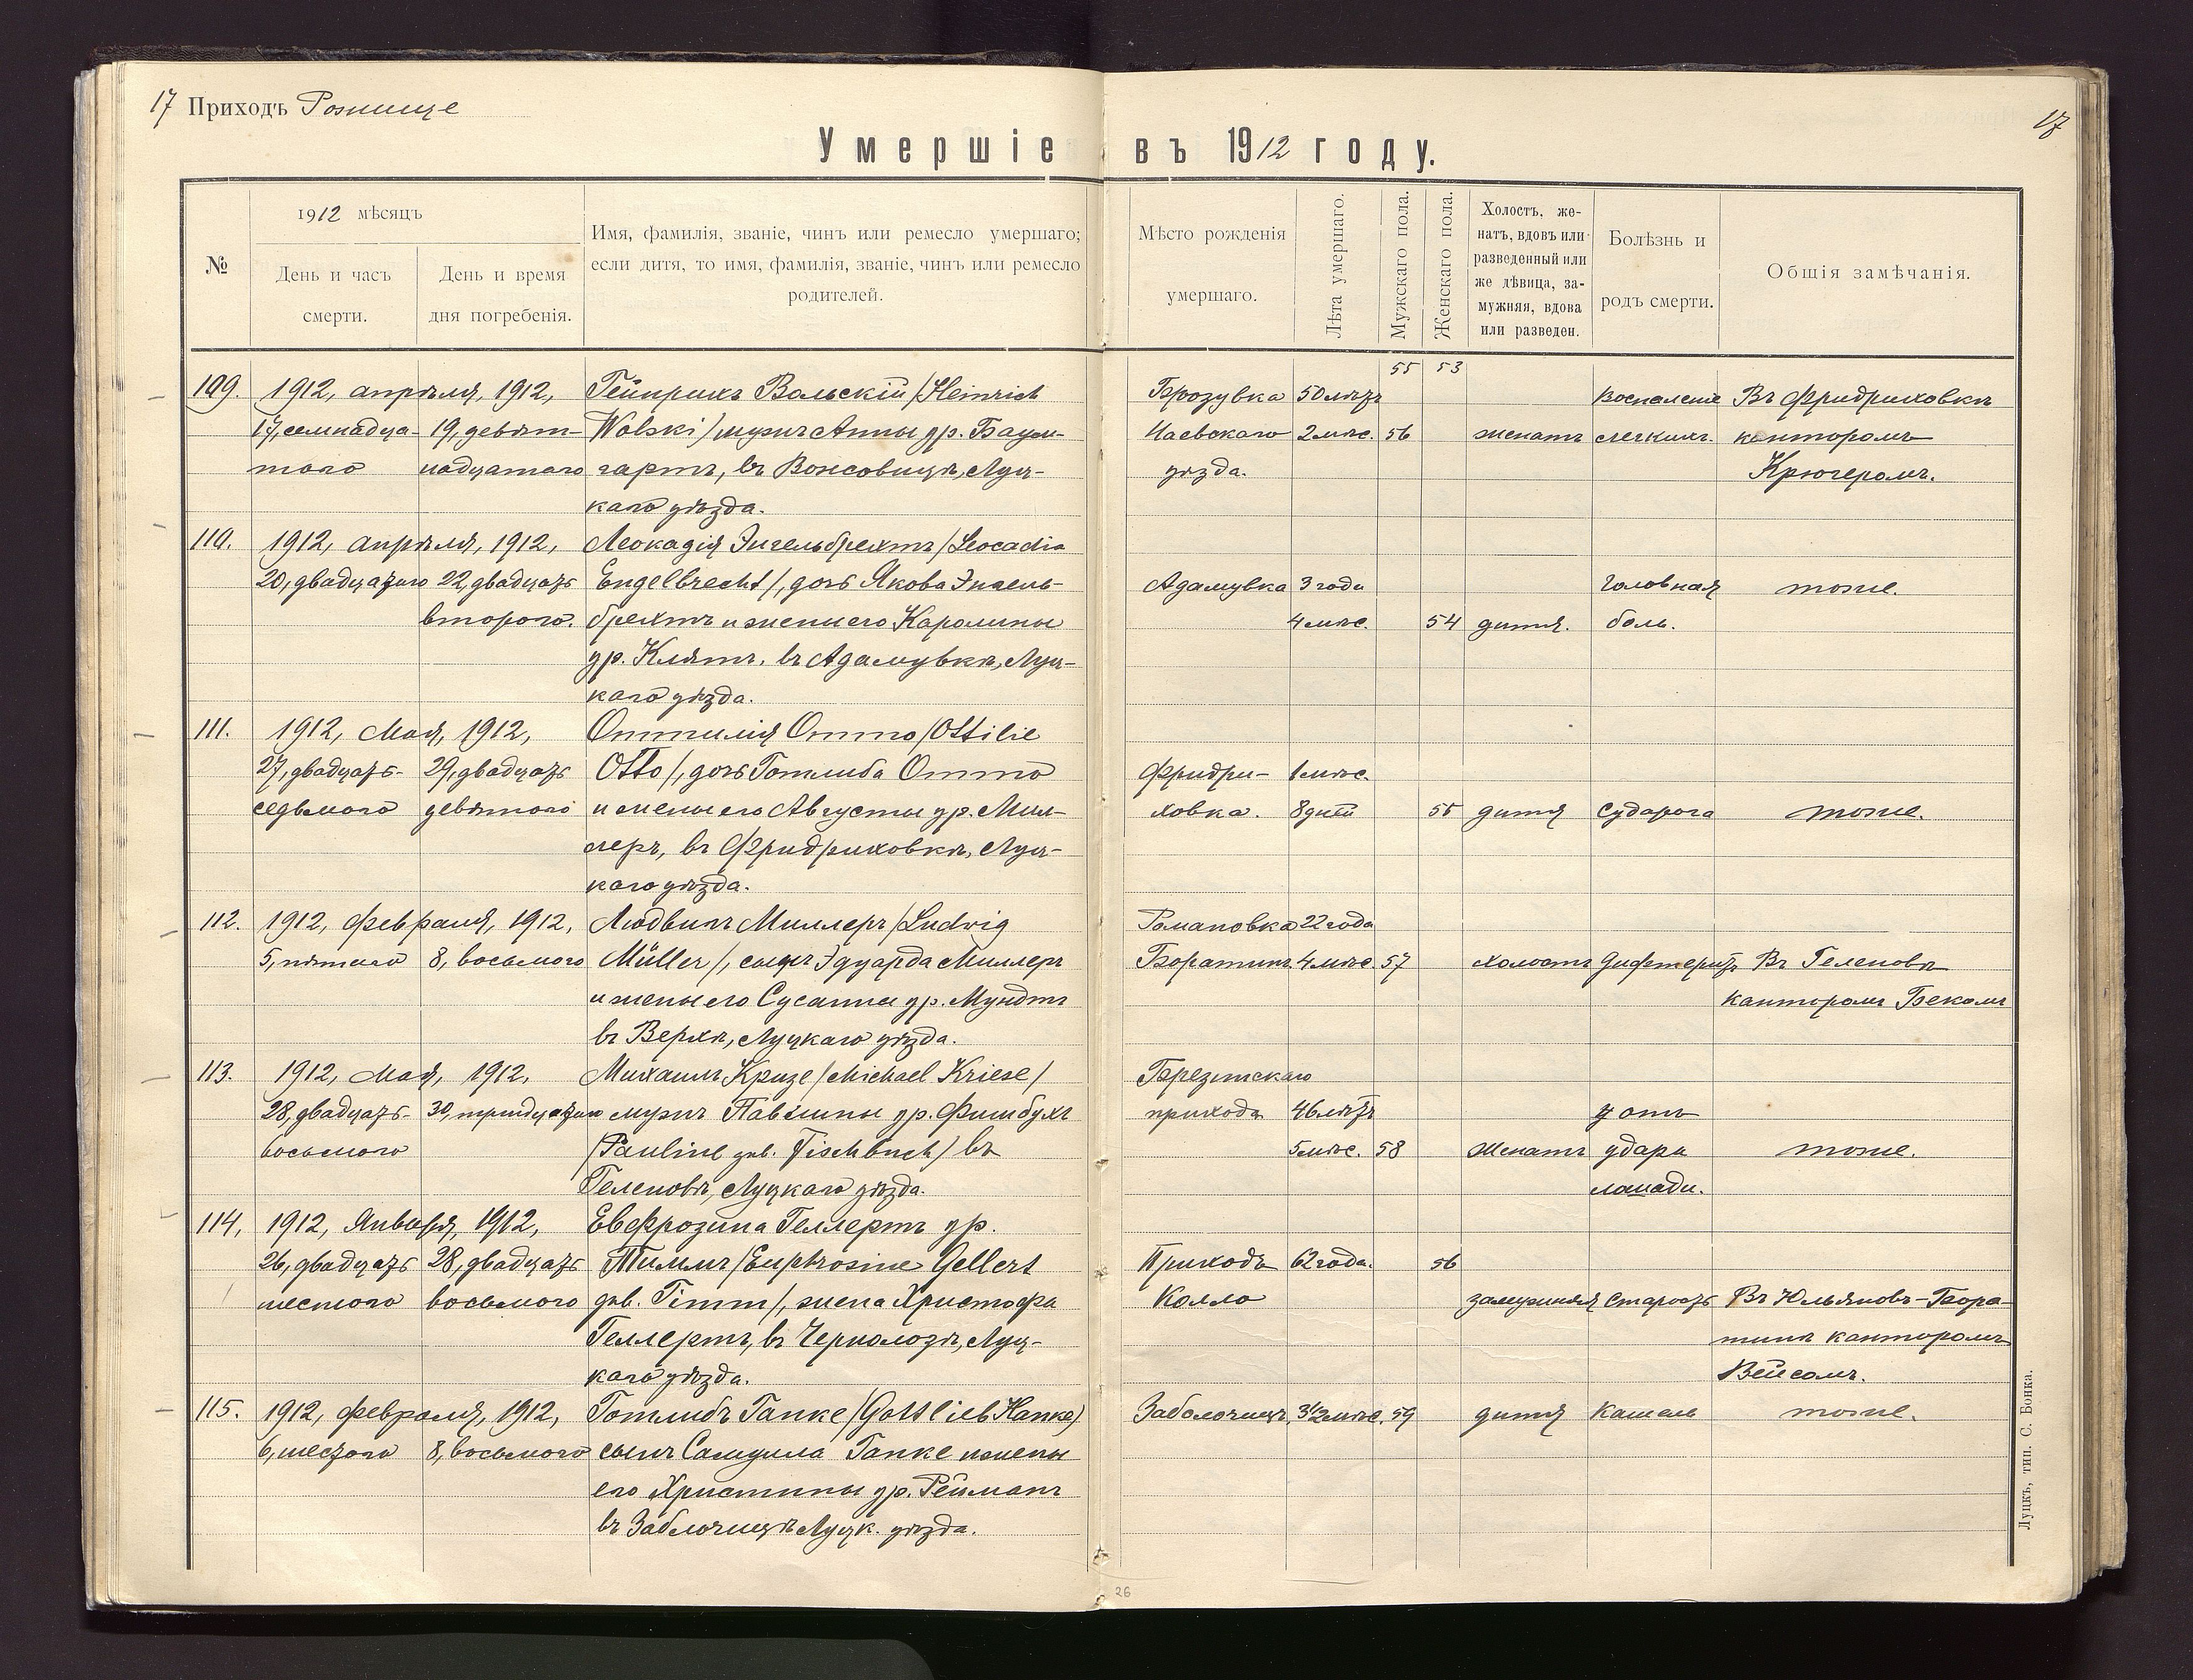 17 Приходъ Рожище
17
Умершіе въ 1912 году.
№
1912 мѣсяцъ
День и часъ смерти.
День и время дня погребенія.
Имя, фамилія, званіе, чинъ или ремесло умершаго;
если дитя, то имя, фамилія, званіе, чинъ или ремесло
родителей.
Мѣсто рожденія
умершаго.
Лѣта умершаго.
Мужскаго пола.
Женскаго пола.
Холостъ, же-
натъ, вдовъ или
разведенный или
же дѣвица, за-
мужняя, вдова
или разведен.
Болѣзнь и
родъ смерти.
Общія замѣчанія.
55 53
109. 1912, апрѣля, 1912, Гейнрихъ Вольскій /Heinrich Брозувка 50 лѣтъ Воспаленіе Въ Фридриховкѣ
17, семнадца- 19, девят- Wolski/ мужъ Анны ур. Баум- 2 мѣс. 56 женатъ легкихъ. канторомъ
таго надцатаго гартъ, въ Вонсовицѣ, Луц- уѣзда. Крюгеромъ.
каго уѣзда.
110. 1912, апрѣля, 1912, Леокадія Энгельбрехтъ /Leocadia
20, двадцатаго 22, двадцать Engelbrecht/, дочь Якова Энгель- Адамувка 3 года Головная тоже.
второго. брехтъ и жены его Каролины 4 мѣс. 54 дитя. боль.
ур. Клятъ, въ Адамувкѣ, Луц-
каго уѣзда.
111. 1912, Мая, 1912, Оттилія Отто /Ottilie
27, двадцать- 29, двадцать Otto/, дочь Готлиба Отто Фридри- 1 мѣс.
седьмого девятого и жены его Августы ур. Мил- ховка. 8 дней 55 дитя Судорога тоже.
леръ, въ Фридриховкѣ, Луц-
каго уѣзда.
112. 1912, февраля, 1912, Людвигъ Миллеръ /Ludwig Романовка 22 года
5, пятаго 8, восьмого Müller/, сынъ Эдуарда Миллеръ Боратинъ 4 мѣс. 57 холостъ Дифтеритъ Въ Геленовѣ
и жены его Сусанны ур. Мундтъ канторомъ Бекомъ
въ Верхѣ, Луцкаго уѣзда.
113. 1912, Мая, 1912, Михаилъ Кризе /Michael Kriese/ Брезинскаго
28, двадцать- 30, тридцатаго мужъ Павлины ур. Фишбухъ прихода 46 лѣтъ отъ
восьмого /Pauline geb. Fischbuch/ въ 5 мѣс. 58 Женатъ удара тоже.
Геленовѣ, Луцкаго уѣзда. лошади.
114. 1912, Января, 1912, Евфрозина Геллертъ ур.
26, двадцать 28, двадцать Тиммъ /Euphrosine Gellert Приходъ 62 года. 56
шестого восьмого geb. Timm/, жена Христофа Колло замужняя Старость Въ Юльяновъ-Бора-
Геллертъ, въ Чернолозѣ, Луц- тинѣ канторомъ
каго уѣзда. Вейсомъ.
115. 1912, февраля, 1912, Готлибъ Ганке /Gottlieb Hanke/ Заболотцы 3½ мѣс. 59 дитя Кашель тоже.
6, шестого 8, восьмого сынъ Самуила Ганке и жены
его Христины ур. Рейманъ
въ Заболотцѣ Луцк. уѣзда.
Луцкъ, тип. С. Бонка.
26